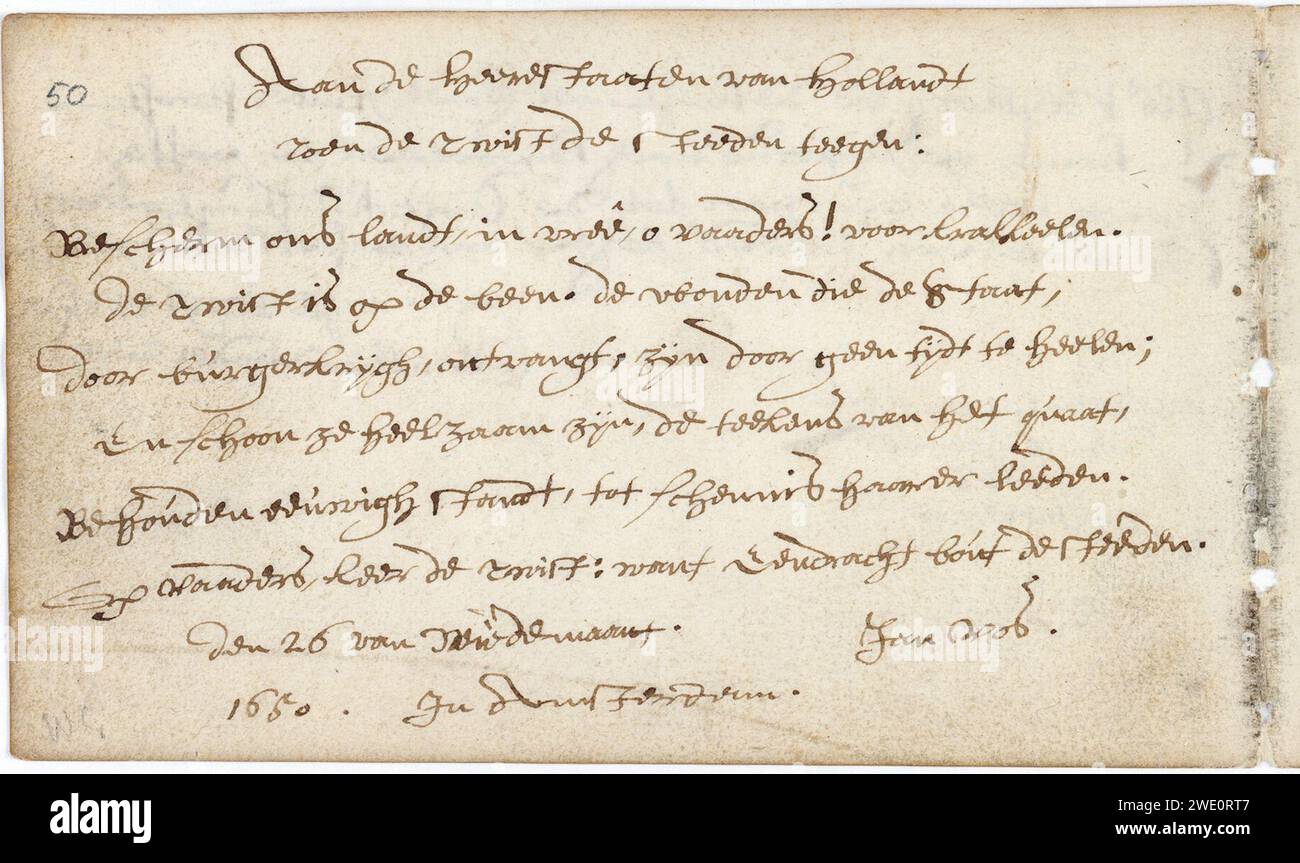 50
Aan de Heere Staaten van Hollandt
toen de twist de steeden teegen:
Bescherm ons landt, in vreê, o vaaders! voor krakkeelen.
de twist is op de been. de wonden die de Staat,
door burgerkrÿgh, ontvangt, zÿn door geen tÿdt te heelen;
En schoon ze heelzaam zÿn, de teekens van het quaat,
Behouden eeuwigh standt, tot schennis haarer leeden.
Op Vaaders, leer de twist: want Eendracht bout de steeden.
den 26 van Weÿdemaant. Jan Vos.
1650. In Amsterdam.
alamy
Image ID: 2WE0RT7
www.alamy.com